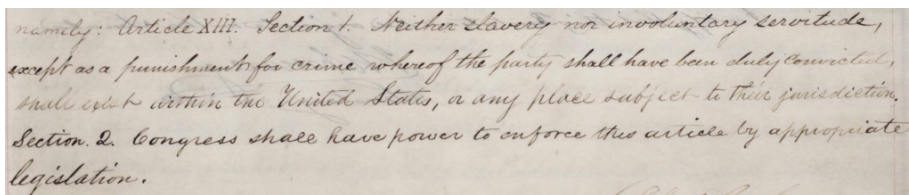 namely: Article XIII. Section 1. Neither slavery nor involuntary servitude,
except as a punishment for crime whereof the party shall have been duly convicted,
shall exist within the United States, or any place subject to their jurisdiction.
Section. 2. Congress shall have power to enforce this article by appropriate
legislation.